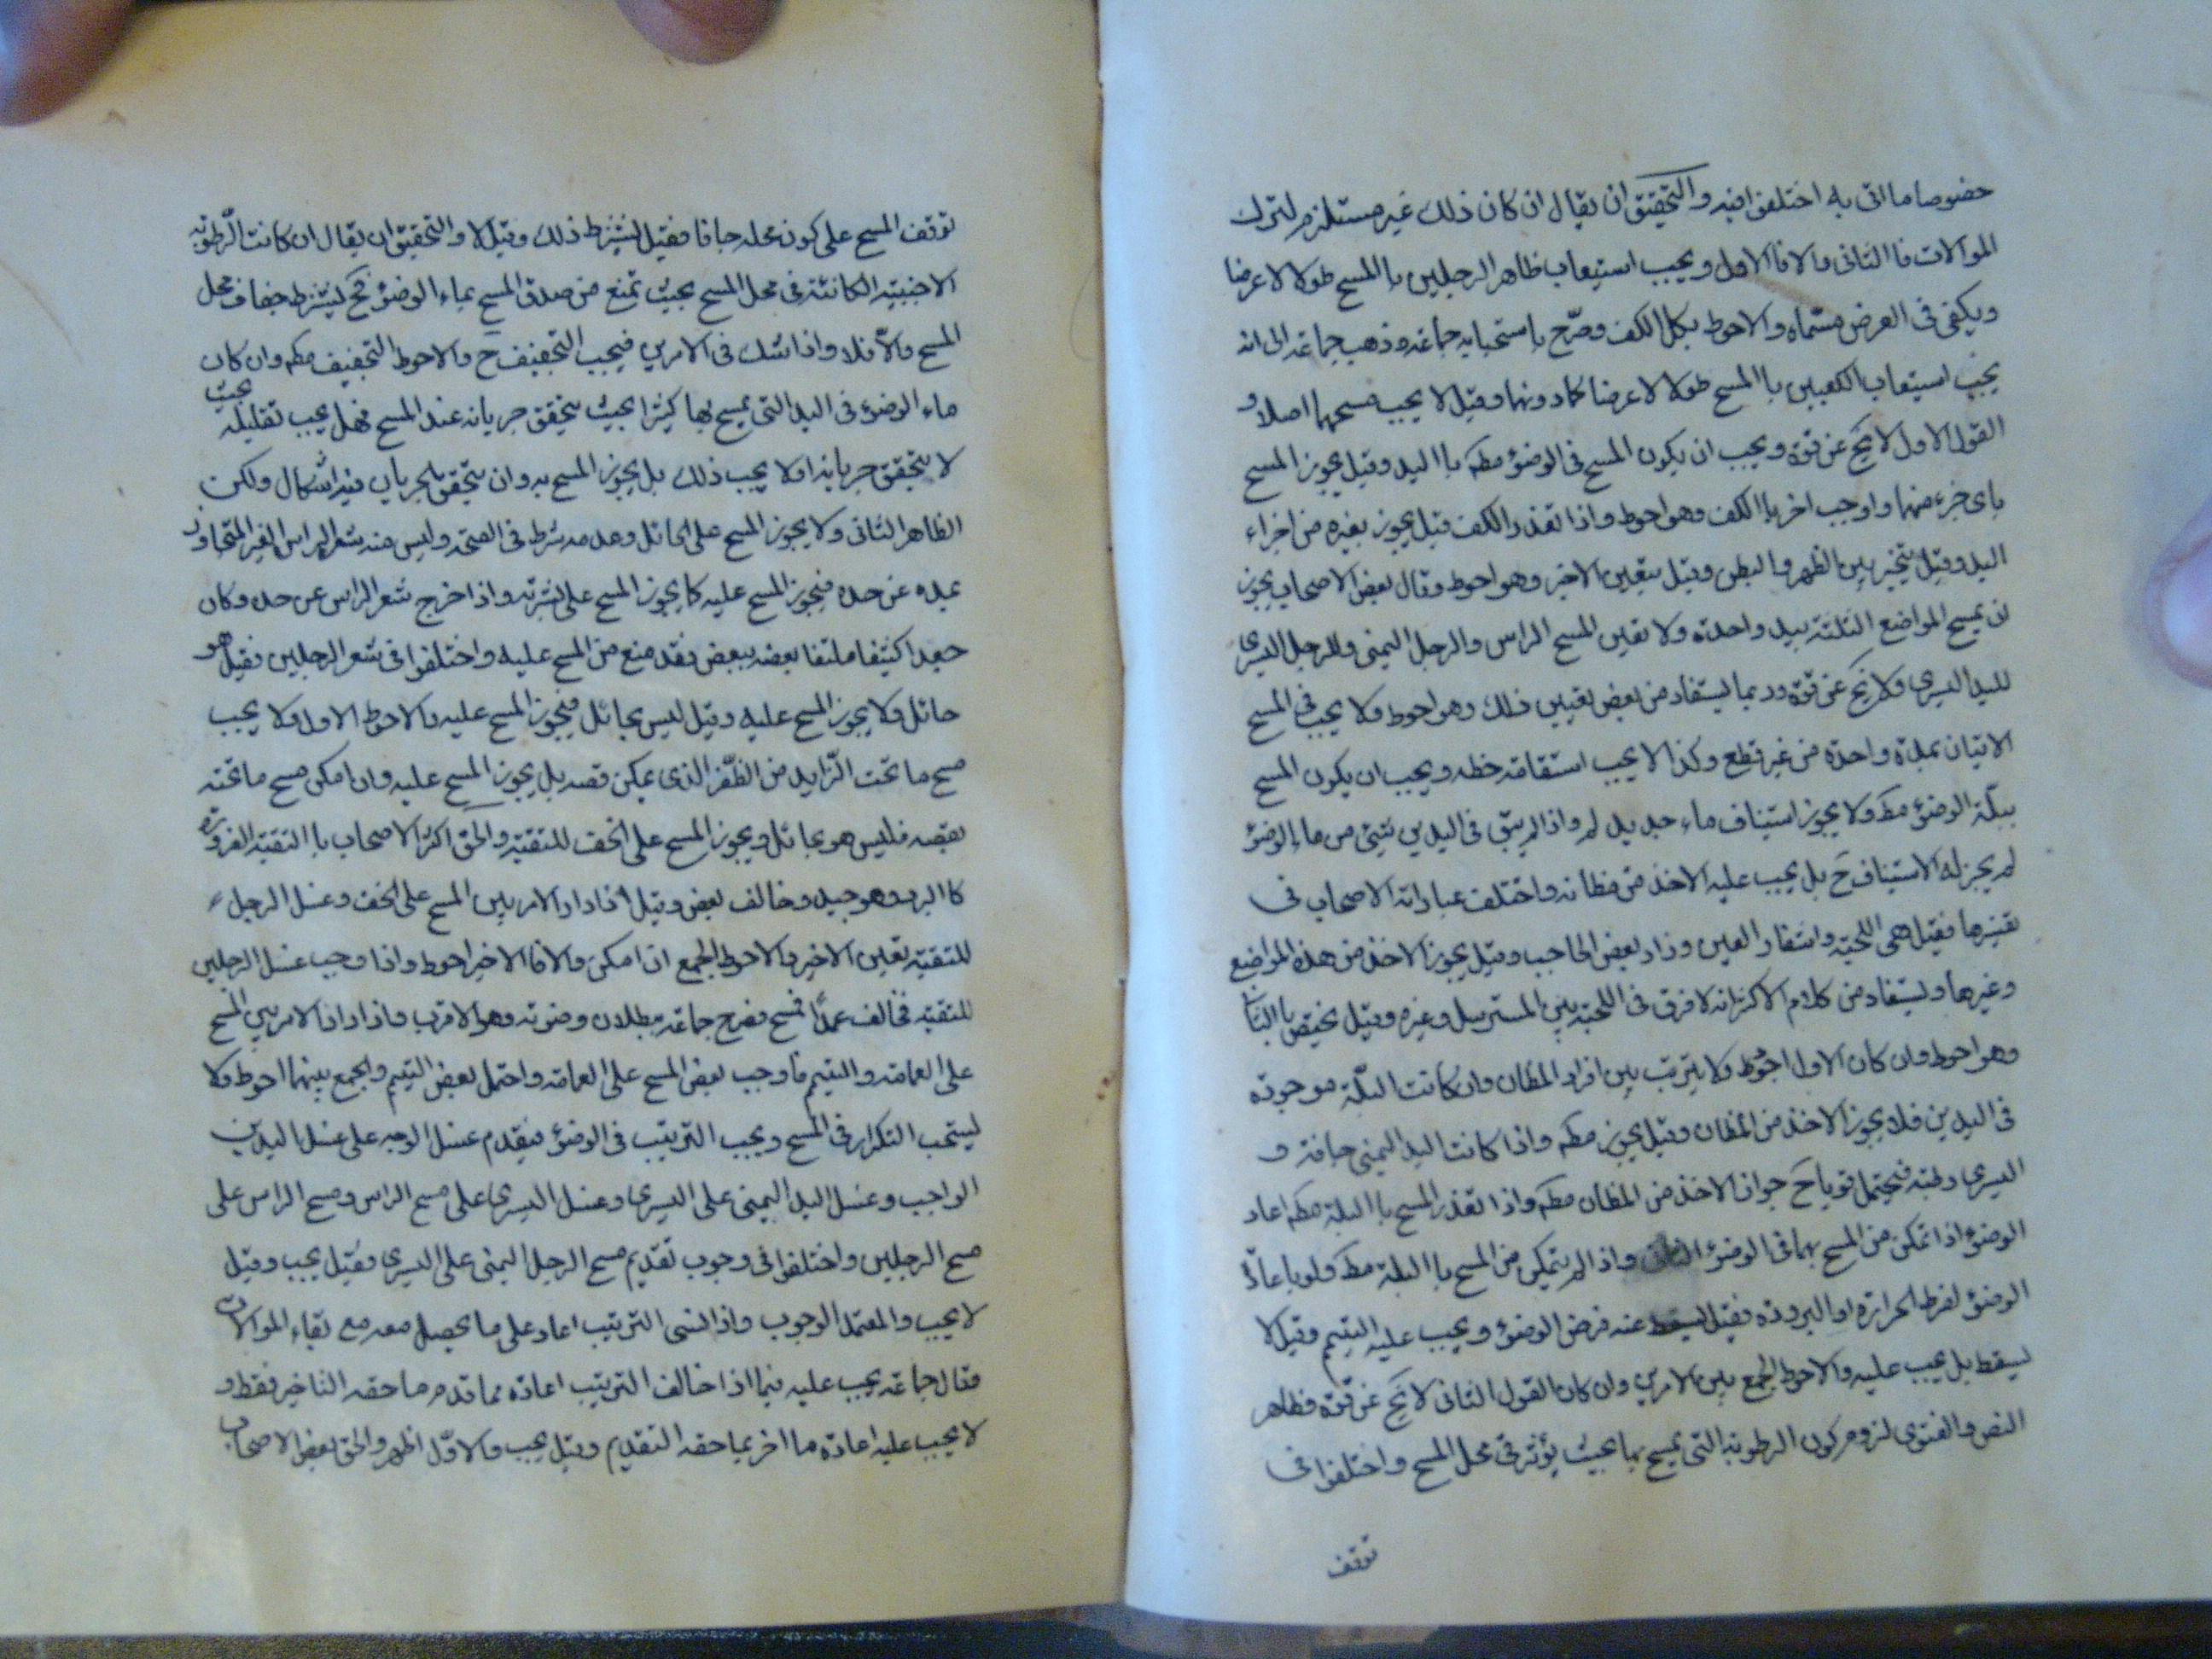 خصوصا ما اتى به اختلفوا فيه والتحقيق ان يقال ان كان ذلك غير مستلزم لترك
الموالات فا الثانى والا فا الاول ويجب استيعاب ظاهر الرجلين با المسح طولا لا عرضا
ويكفى فى العرض مسماه والاحوط بكل الكف وصرّح باستحبابه جماعة وذهب جماعة الى انه
يجب استيعاب الكعبين با المسح طولا لا عرضا كما دونهما وقيل لا يجب مسحهما اصلا و
القول الاول لا يخ عن قوة ويجب ان يكون المسح فى الوضوء مطم با اليد وقيل يجوز المسح
باى جزء منهما واوجب اخر با الكف وهو احوط واذا تعذر الكف قيل يجوز بغيره من اجزاء
اليد وقيل يتخير بين الظهر والبطن وقيل يتعين الاخير وهو احوط وقال بعض الاصحاب يجوز
ان يمسح المواضع الثلثة بيد واحدة ولا تعين المسح الراس والرجل اليمنى والرجل اليسرى
لليد اليسرى ولا يخ عن قوة وربما يستفاد من بعض تعيين ذلك وهو احوط ولا يجب فى المسح
الاتيان بمدة واحدة من غير قطع وكذا لا يجب استقامة خطه ويجب ان يكون المسح
ببلّة الوضوء مطم ولا يجوز استيناف ماء جديد له واذا لم يبق فى اليدين شيئ من ماء الوضوء
لم يجز له الاستيناف ح بل يجب عليه الاخذ من مظانه واختلف عباراته الاصحاب فى
تفسيرها فقيل هى اللحية واشفار العين وزاد بعض الحاجب وقيل يجوز الاخذ من هذه المواضع
وغيرها ويستفاد من كلام الاكثر انه لا فرق فى اللحية بين المسترسل وغيره وقيل يختص با الثانى
وهو احوط وان كان الاول اجود ولا يترتب بين افراد المظان وان كانت البلّة موجودة
فى اليدين فلا يجوز الاخذ من المظان وقيل يجوز مطم واذا كانت اليد اليمنى جافة و
اليسرى رطبة فيحتمل قويا ح جواز الاخذ من المظان مطم واذا تعذر المسح با البلة مطم اعاد
الوضوء اذا تمكن من المسح بها فى الوضوء الثانى واذا لم يتمكن من المسح با البلة مطم ولو باعادة
الوضوء لفرط الحرارة او البرودة فقيل يسقط عنه فرض الوضوء ويجب عليه التيمم وقيل لا
يسقط بل يجب عليه والاحوط الجمع بين الامرين وان كان القول الثانى لا يخ عن قوة فظاهر
النص والفتوى لزوم كون الرطوبة التى يمسح بها بحيث يؤثر فى محل المسح واختلفوا فى
توقف
توقف المسح على كون محله جافا فقيل يشترط ذلك وقيل لا والتحقيق ان يقال ان كانت الرطوبة
الاجنبية الكائنة فى محل المسح بحيث تمنع من صدق المسح بماء الوضوء فح يشترط جفاف محل
المسح والّا فلا واذا شك فى الامرين فيجب التجفيف ح والاحوط التجفيف مطم وان كان
ماء الوضوء فى اليد التى يمسح بها كثيرا بحيث يتحقق جريانه عند المسح فهل يجب تقليله بحيث
لا يتحقق جريانه او لا يجب ذلك بل يجوز المسح به وان يتحقق الجريان فيه اشكال ولكن
الظاهر الثانى ولا يجوز المسح على الحائل وعدمه شرط فى الصحة وليس منه شعر الراس الغير المتجاوز
بمده عن حده فيجوز المسح عليه كما يجوز المسح على بشرته واذا خرج شعر الراس عن حده وكان
جعدا كثيفا ملتفا بعضه ببعض فقد منع من المسح عليه واختلفوا فى شعر الرجلين فقيل هو
حائل ولا يجوز المسح عليه وقيل ليس بحائل فيجوز المسح عليه والاحوط الاول ولا يجب
مسح ما تحت الزايد من الظفر الذى يمكن قصه بل يجوز المسح عليه وان امكن مسح ما تحته
بقصه فليس هو بحائل ويجوز المسح على الخف للتقية والحق اكثر الاصحاب با التقية الضرورة
كا البرد وهو جيد وخالف بعض وقيل اذا دار الامر بين المسح على الخف وغسل الرجل
للتقية تعين الاخير والاحوط الجمع ان امكن والا فا الاخير احوط واذا وجب غسل الرجلين
للتقية فخالف عمدا فمسح فصرح جماعة ببطلان وضوئه وهو الاقرب واذا دار الامر بين المسح
على العمامة والتيمم فاوجب بعض المسح على العمامة واحتمل بعض التيمم والجمع بينهما احوط ولا
يستحب التكرار فى المسح ويجب الترتيب فى الوضوء فيقدم غسل الوجه على غسل اليدين
الواجب وغسل اليد اليمنى على اليسرى وغسل اليسرى على مسح الراس ومسح الراس على
مسح الرجلين واختلفوا فى وجوب تقديم مسح الرجل اليمنى على اليسرى فقيل يجب وقيل
لا يجب والمعتمد الوجوب واذا نسى الترتيب اعاد على ما يحصل معه مع بقاء الموالات
فقال جماعة يجب عليه فيما اذا خالف الترتيب اعادة ما قدم ما حقه التاخير فقط و
لا يجب عليه اعادة ما اخر بما حقه التقديم وقيل يجب والاوّل اظهر والحق بعض الاصحاب